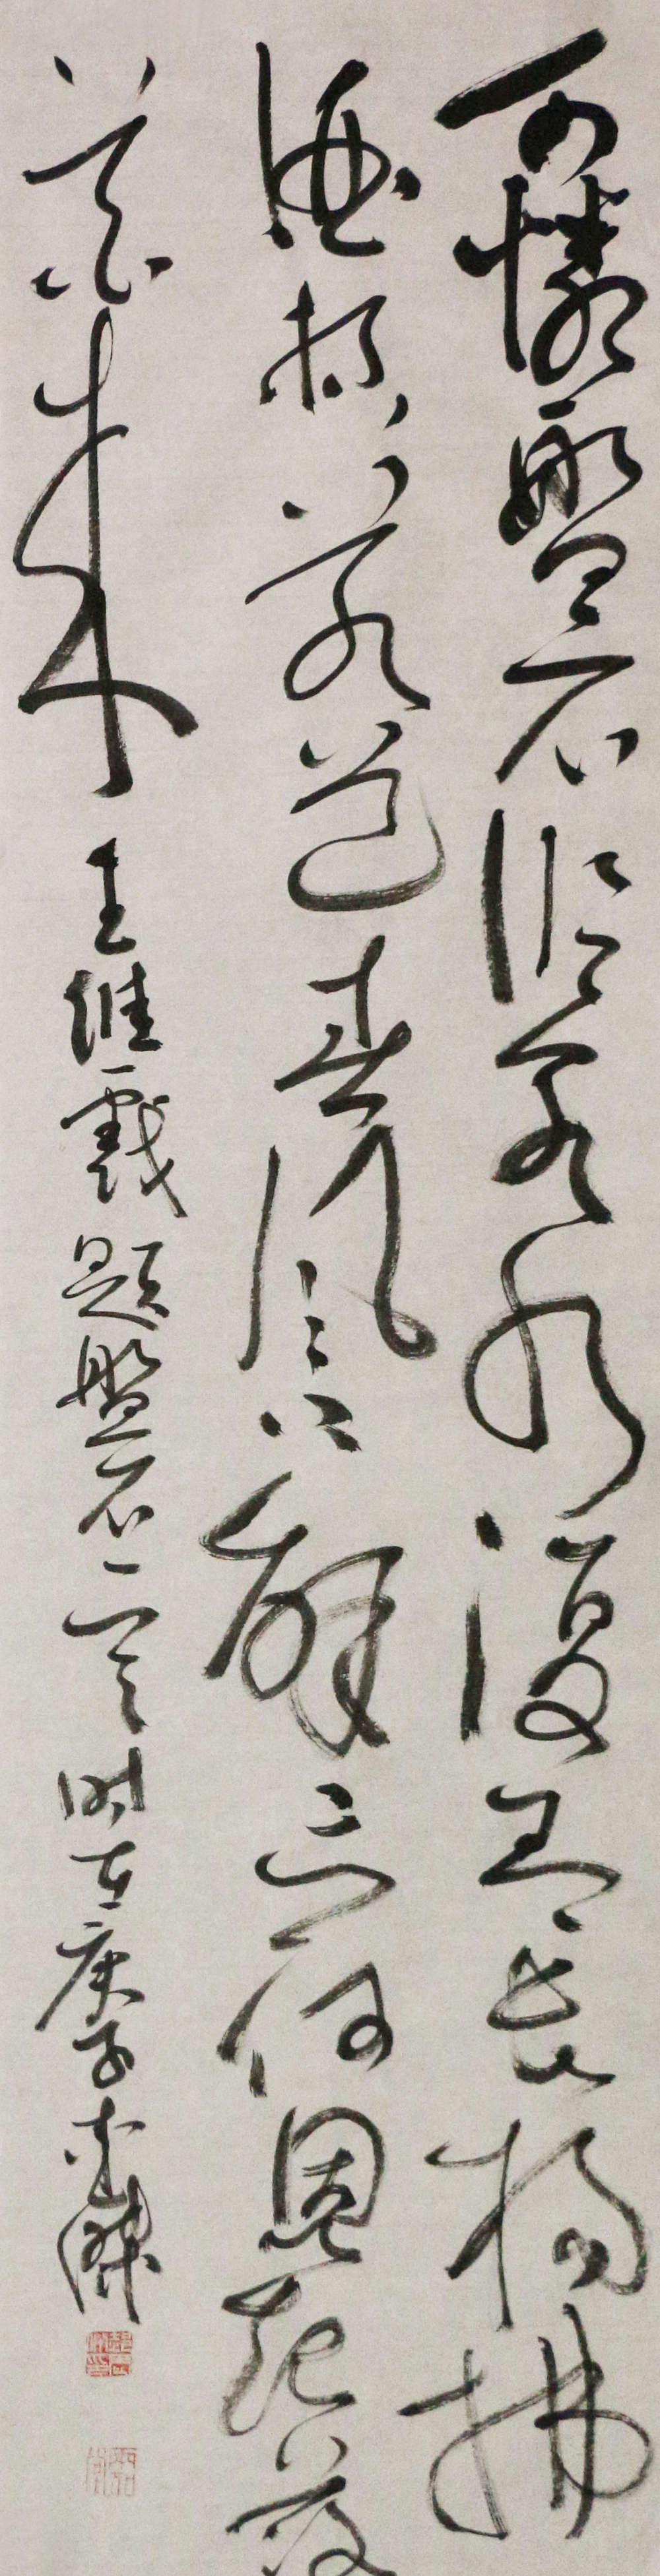 可憐盤石臨泉水復有垂楊拂
酒杯若道春風不解意何因落
花來 王維戲題盤石 時在庚子